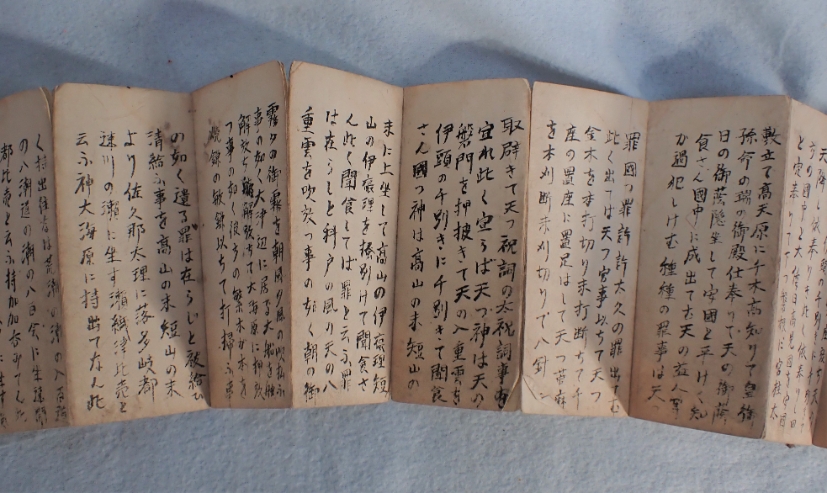 敷立て高天原に千木高知りて皇御
孫命の瑞の御殿仕奉りて天の御蔭
日の御蔭隠坐して安國と平けく知
食さん國中に成出む天の益人等
が過犯しけむ種種の罪事は天つ
罪國つ罪許許太久の罪出でむ
此く出ては天つ宮事以ちて天つ
金木を本打切り末打断ちて千
座の置座に置足はして天つ菅麻
を本刈断末刈切りて八針に
取辟きて天つ祝詞の太祝詞事を
宣れ此く宣らば天つ神は天の
磐門を押披きて天の八重雲を
伊頭の千別きに千別きて聞食
さん國つ神は高山の末短山の
末に上坐して高山の伊褒理短
山の伊褒理を掻別けて聞食さ
ん此く聞食してば罪と云ふ罪
は在らじと科戸の風の天の八
重雲を吹放つ事の如く朝の御
霧夕の御霧を朝風夕風の吹払ふ
事の如く大津辺に居る大船を舳
解放ち艫解放ちて大海原に押放
つ事の如く彼方の繁木が本を
焼鎌の敏鎌以ちて打掃ふ事
の如く遺る罪は在らじと祓給ひ
清給ふ事を高山の末短山の末
より佐久那太理に落多岐都
速川の瀬に坐す瀬織津比売と
云ふ神大海原に持出てなん此
く持出往なば荒潮の潮の八百道
の八潮道の潮の八百会に坐す速開
都比売と云ふ神持加加呑みてん